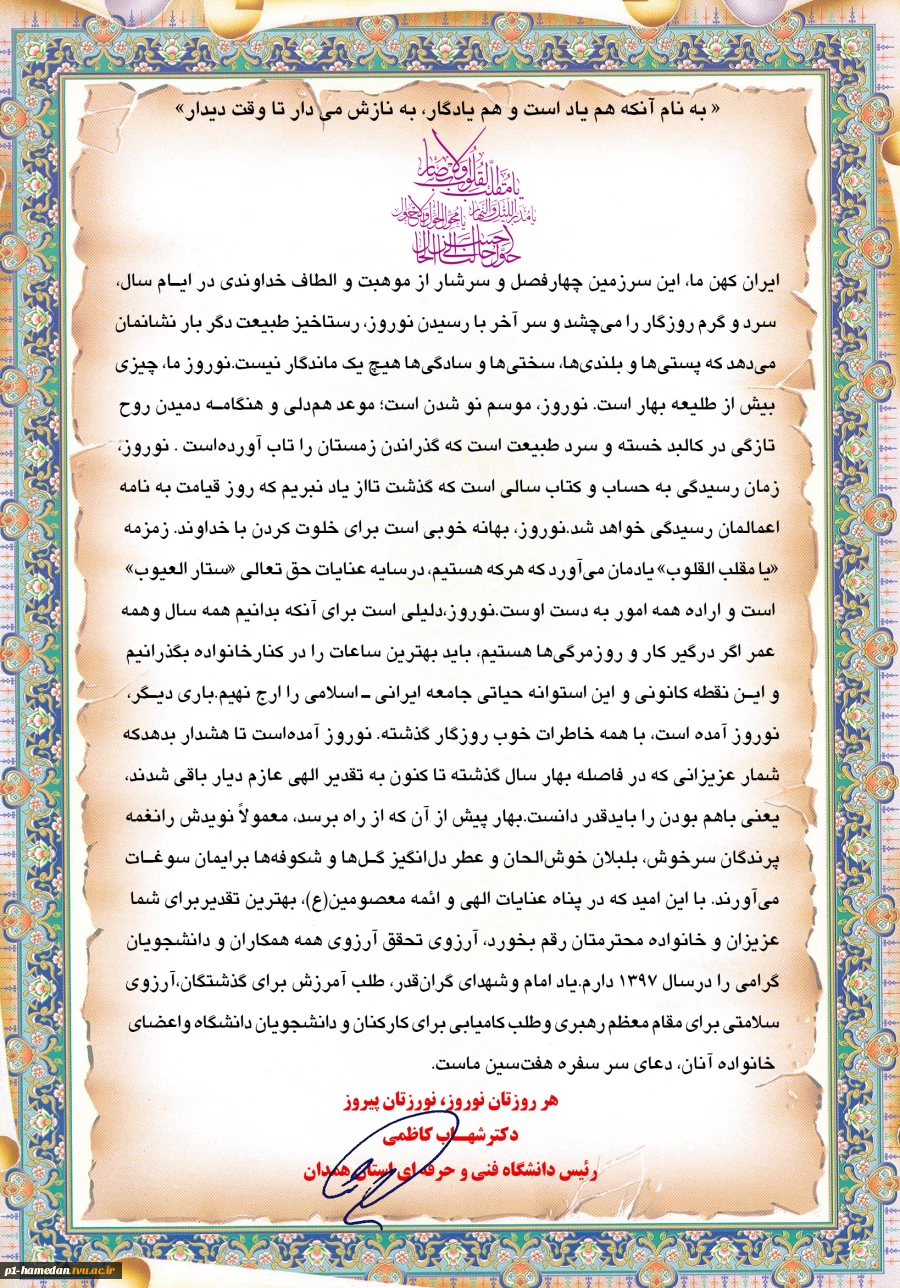 « به نام آنکه هم یاد است و هم یادگار، به نازش می دار تا وقت دیدار»
یا مقلب القلوب والابصار
یا مدبر اللیل والنهار یا محول الحول والاحوال
حول حالنا الی احسن الحال
ایران کهن ما، این سرزمین چهارفصل و سرشار از موهبت و الطاف خداوندی در ایـام سال،
سرد و گرم روزگار را می‌چشد و سر آخر با رسیدن نوروز، رستاخیز طبیعت دگر بار نشانمان
می‌دهد که پستی‌ها و بلندی‌ها، سختی‌ها و سادگی‌ها هیچ یک ماندگار نیست.نوروز ما، چیزی
بیش از طلیعه بهار است. نوروز، موسم نو شدن است؛ موعد هم‌دلی و هنگامـه دمیدن روح
تازگی در کالبد خسته و سرد طبیعت است که گذراندن زمستان را تاب آورده‌است . نوروز،
زمان رسیدگی به حساب و کتاب سالی است که گذشت تااز یاد نبریم که روز قیامت به نامه
اعمالمان رسیدگی خواهد شد.نوروز، بهانه خوبی است برای خلوت کردن با خداوند. زمزمه
«یا مقلب القلوب» یادمان می‌آورد که هرکه هستیم، درسایه عنایات حق تعالی «ستار العیوب»
است و اراده همه امور به دست اوست.نوروز،دلیلی است برای آنکه بدانیم همه سال وهمه
عمر اگر درگیر کار و روزمرگی‌ها هستیم، باید بهترین ساعات را در کنارخانواده بگذرانیم
و ایـن نقطه کانونی و این استوانه حیاتی جامعه ایرانی ـ اسلامی را ارج نهیم.باری دیـگر،
نوروز آمده است، با همه خاطرات خوب روزگار گذشته. نوروز آمده‌است تا هشدار بدهدکه
شمار عزیزانی که در فاصله بهار سال گذشته تا کنون به تقدیر الهی عازم دیار باقی شدند،
یعنی باهم بودن را بایدقدر دانست.بهار پیش از آن که از راه برسد، معمولاً نویدش رانغمه
پرندگان سرخوش، بلبلان خوش‌الحان و عطر دل‌انگیز گـل‌ها و شکوفه‌ها برایمان سوغـات
می‌آورند. با این امید که در پناه عنایات الهی و ائمه معصومین(ع)، بهترین تقدیربرای شما
عزیزان و خانواده محترمتان رقم بخورد، آرزوی تحقق آرزوی همه همکاران و دانشجویان
گرامی را درسال ۱۳۹۷ دارم.یاد امام وشهدای گران‌قدر، طلب آمرزش برای گذشتگان،آرزوی
سلامتی برای مقام معظم رهبری وطلب کامیابی برای کارکنان و دانشجویان دانشگاه واعضای
خانواده آنان، دعای سر سفره هفت‌سین ماست.
هر روزتان نوروز، نورزتان پیروز
دکترشهـاب کاظمی
رئیس دانشگاه فنی و حرفه ای استان همدان
p1-hamedan.tvu.ac.ir